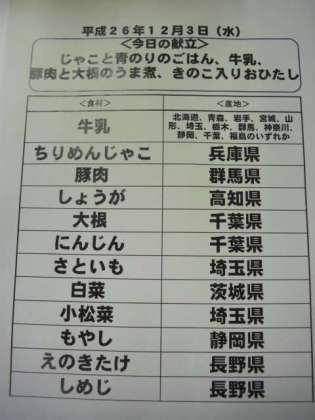 平成26年12月3日（水）
＜今日の献立＞
じゃこと青のりのごはん、牛乳、
豚肉と大根のうま煮、きのこ入りおひたし
＜食材＞ ＜産地＞
牛乳 北海道、青森、岩手、宮城、山
形、埼玉、栃木、群馬、神奈川、
静岡、千葉、福島のいずれか
ちりめんじゃこ 兵庫県
豚肉 群馬県
しょうが 高知県
大根 千葉県
にんじん 千葉県
さといも 埼玉県
白菜 茨城県
小松菜 埼玉県
もやし 静岡県
えのきたけ 長野県
しめじ 長野県